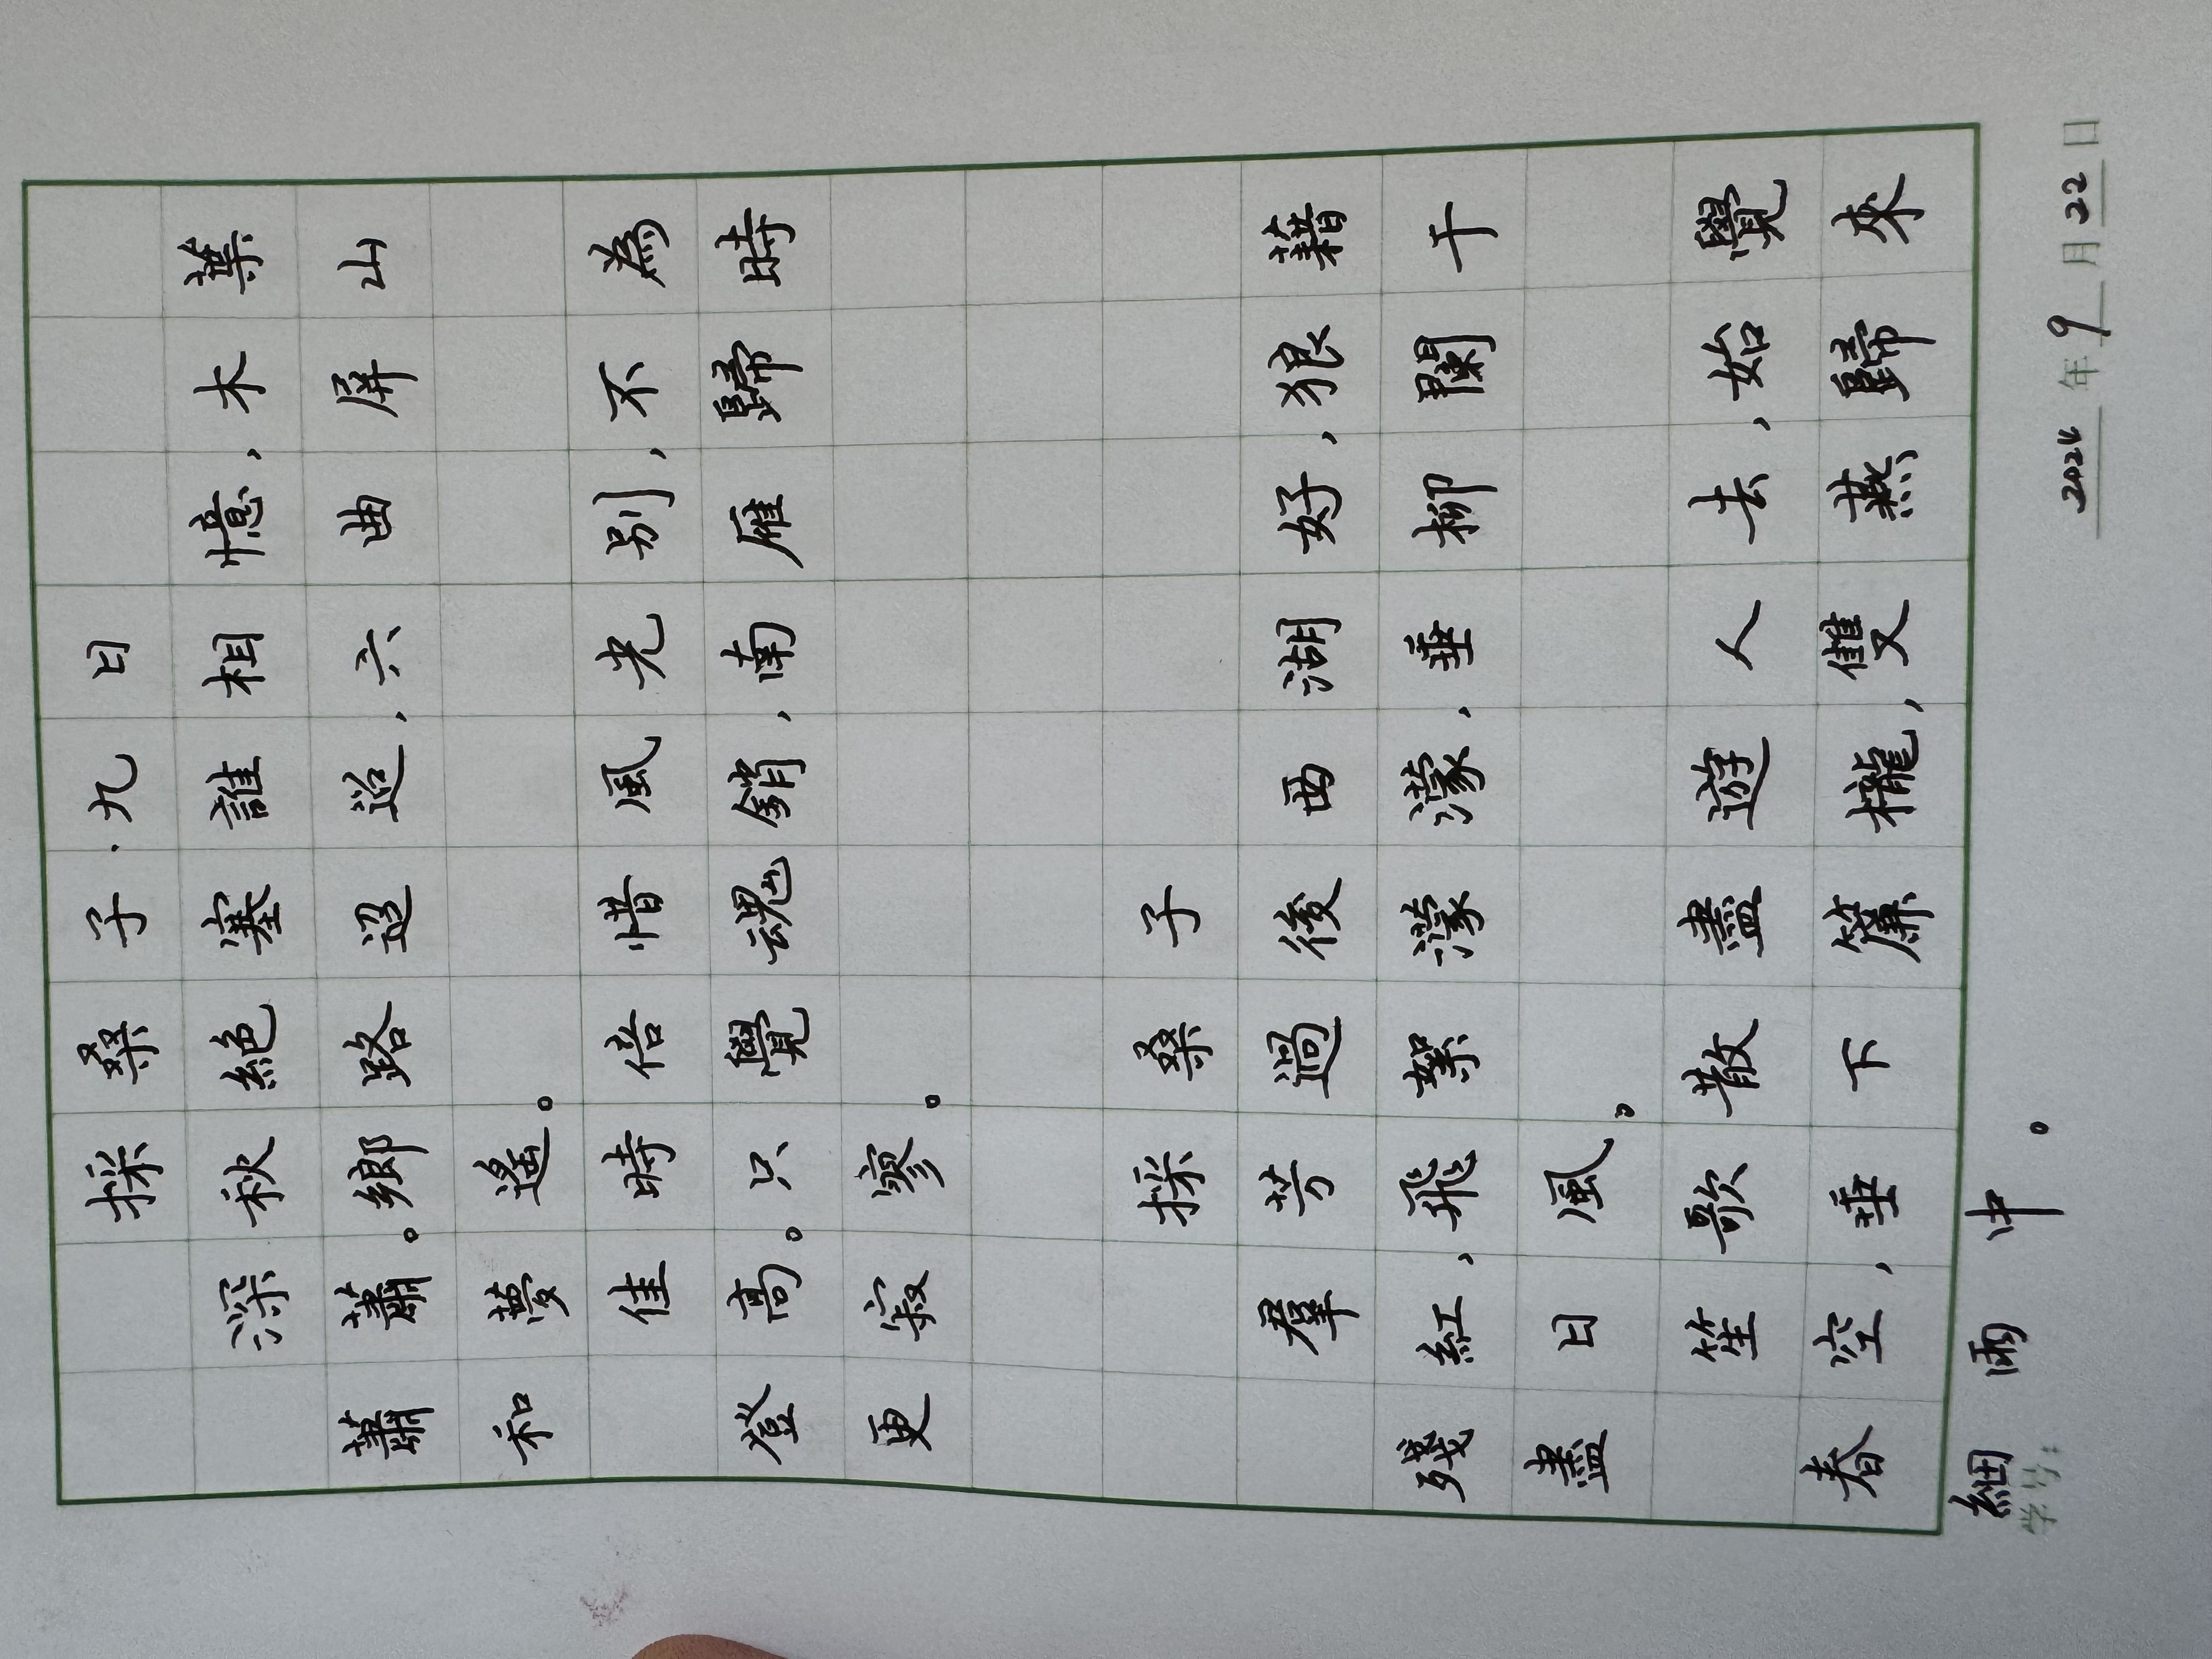 採桑子·九日
深秋絕塞誰相憶,木葉
蕭蕭。鄉路迢迢,六曲屏山
和夢遙。
佳時倍惜風光別,不為
登高。只覺魂銷,南雁歸時
更寂寥。
採桑子
羣芳過後西湖好,狼藉
殘紅,飛絮濛濛,垂柳闌干
盡日風。
笙歌散盡遊人去,始覺
春空,垂下簾櫳,雙燕歸來
細雨中。
学号:
2024年9月22日